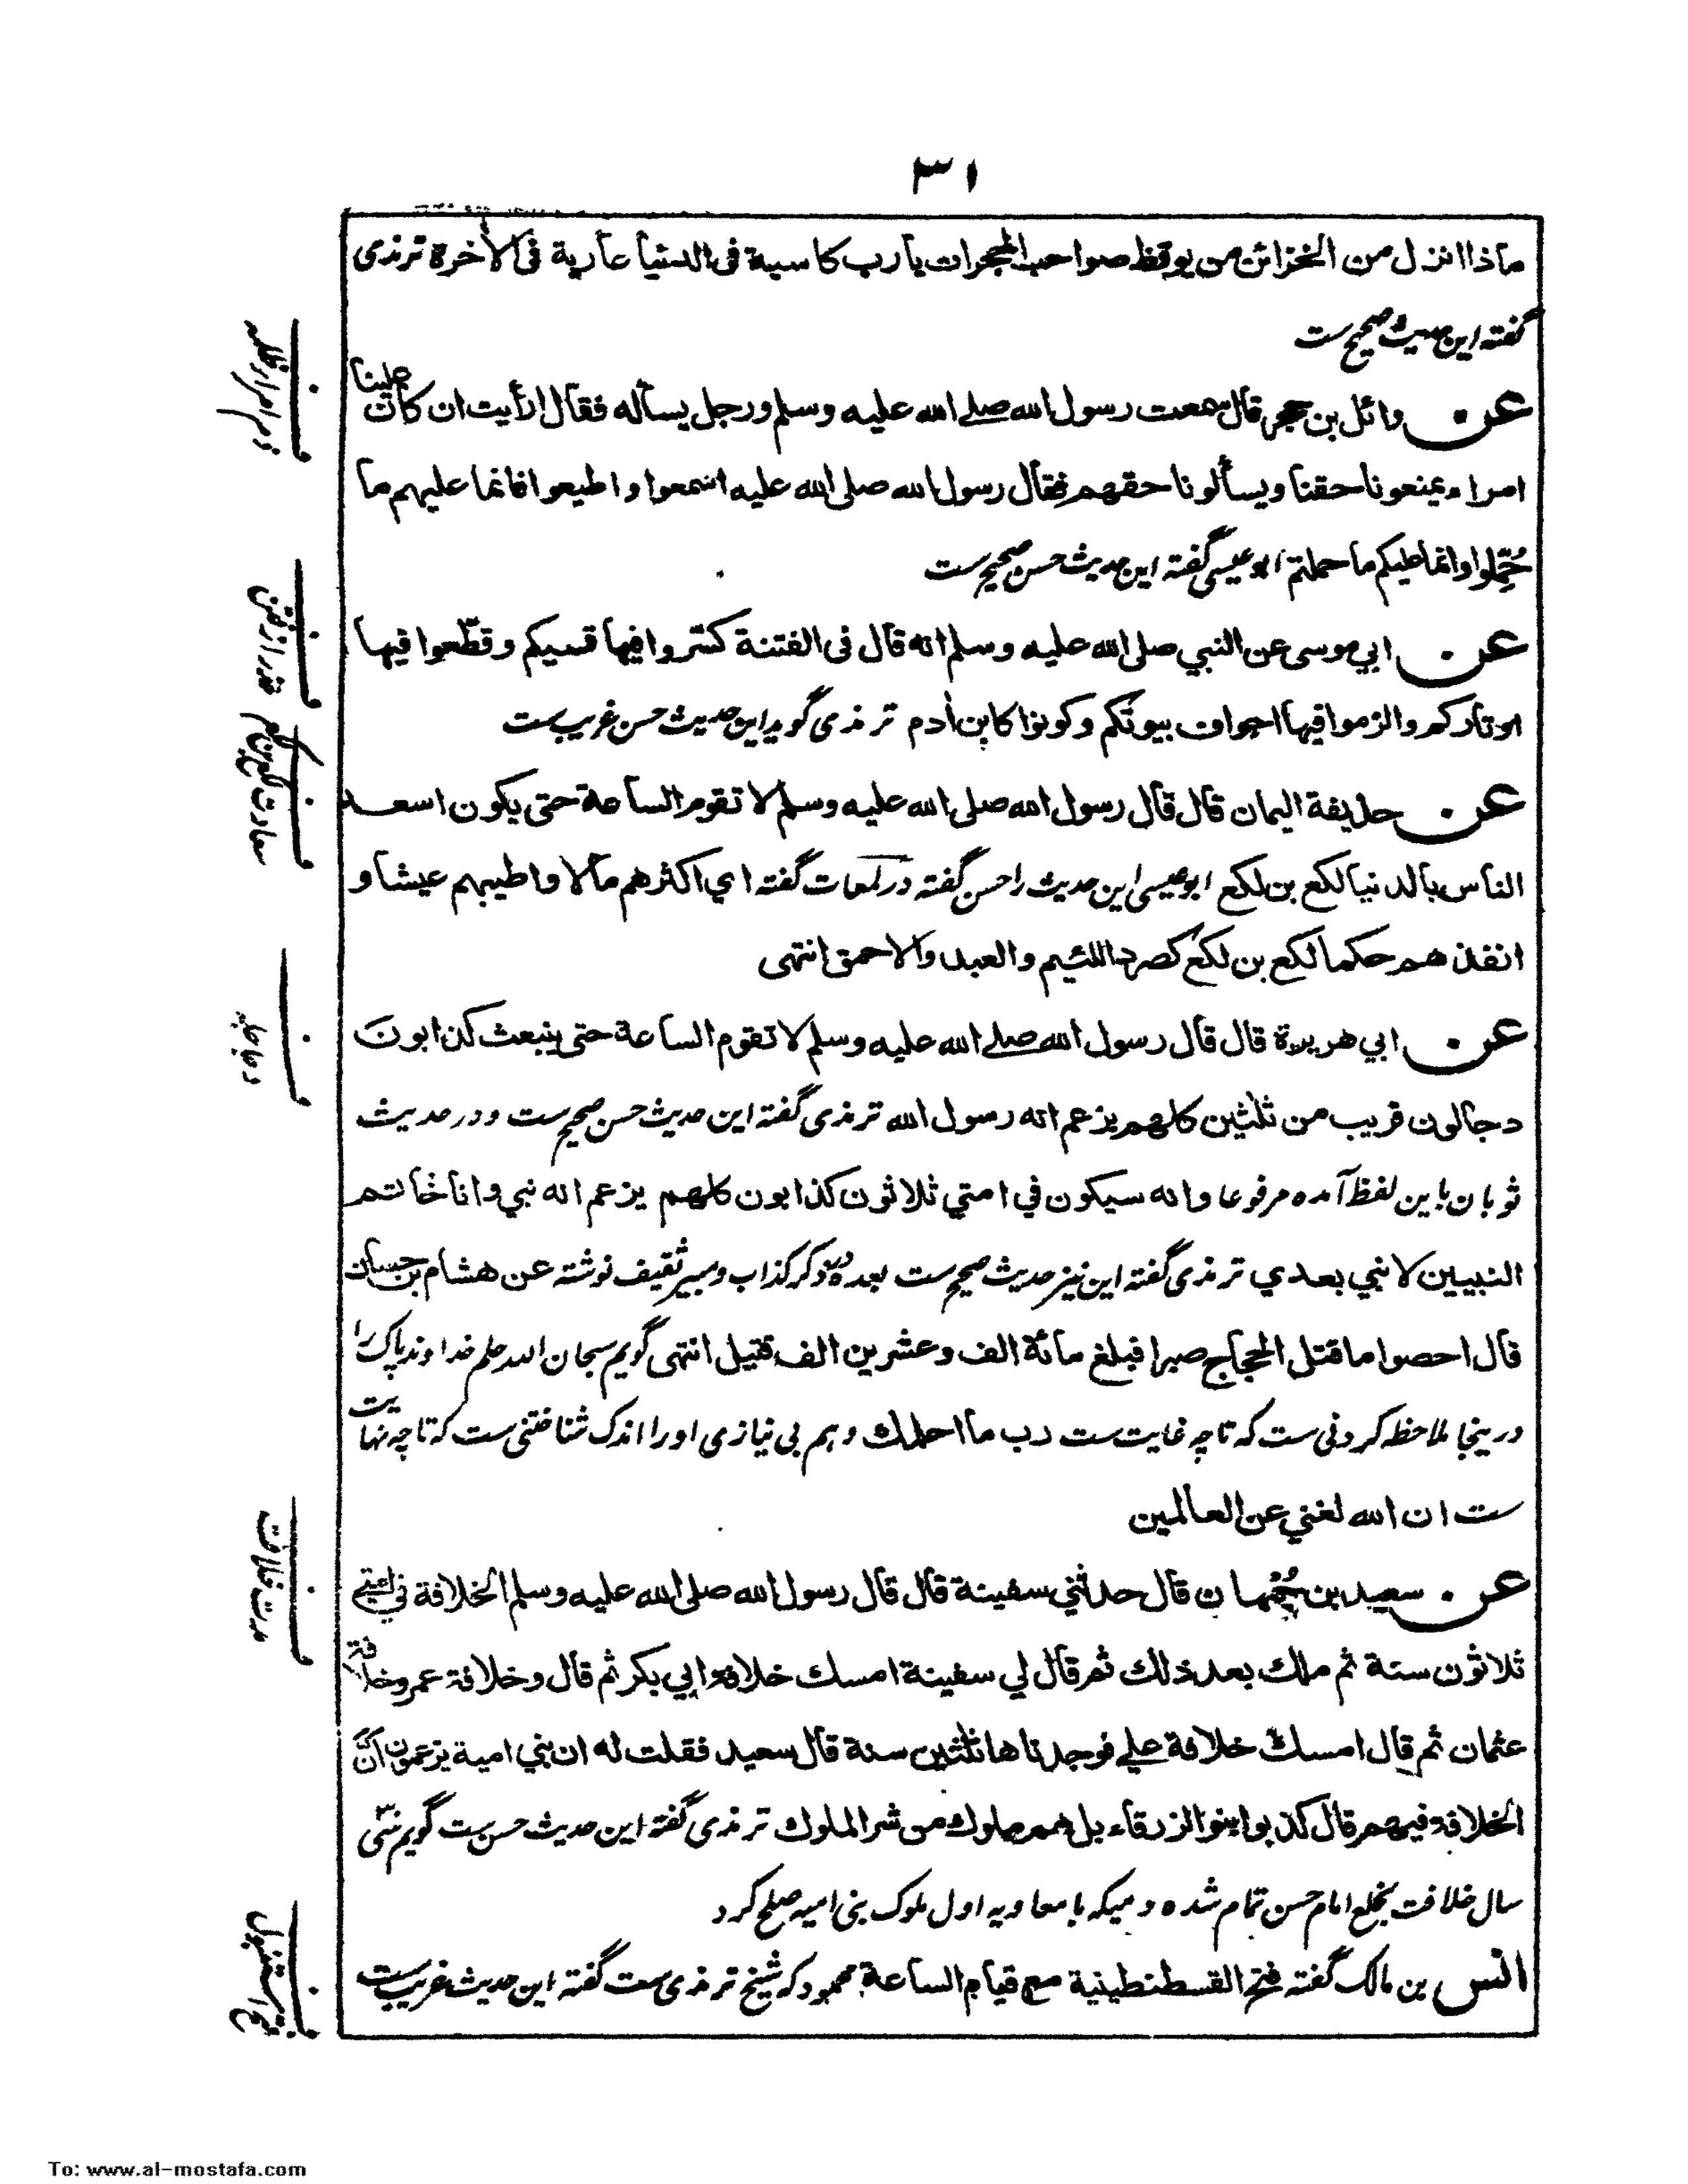 ٣١
ماذا انزل من الخزائن من يوقظ صواحب الحجرات يارب كاسية فى الدنيا عارية فى الأخرة ترمذى
گفته اين حديث صحيح ست
عن وائل بن حجر قال سمعت رسول الله صلے الله عليه وسلم ورجل يسأله فقال ارأيت ان كان علينا
امراء يمنعونا حقنا ويسألونا حقهم فقال رسول الله صلى الله عليه اسمعوا واطيعوا فانما عليهم ما
حُمِّلوا وانما عليكم ما حملتم ابو عيسى گفته اين حديث حسن صحيح ست
عن ابي موسى عن النبي صلى الله عليه وسلم انه قال فى الفتنة كسّروا فيها قسيكم وقطّعوا فيها
اوتاركم والزموا فيها اجواف بيوتكم وكونوا كابن أدم ترمذى گويد اين حديث حسن غريب ست
عن حذيفة اليمان قال قال رسول الله صلى الله عليه وسلم لا تقوم الساعة حتى يكون اسعد
الناس بالدنيا لكع بن لكع ابو عيسى اين حديث را حسن گفته در لمعات گفته اي اكثرهم مالا واطيبهم عيشا و
انفذهم حكما لكع بن لكع كصرد اللئيم والعبد والاحمق انتهى
عن ابي هريرة قال قال رسول الله صلے الله عليه وسلم لا تقوم الساعة حتى ينبعث كذابون
دجالون قريب من ثلثين كلهم يزعم انه رسول الله ترمذى گفته اين حديث حسن صحيح ست ودر حديث
ثوبان باين لفظ آمده مرفوعا وانه سيكون في امتي ثلاثون كذابون كلهم يزعم انه نبي وانا خاتم
النبيين لا نبي بعدي ترمذى گفته اين نيز حديث صحيح ست بعده در ذكر كذاب ومبير ثقيف نوشته عن هشام بن حسان
قال احصوا ما قتل الحجاج صبرا فبلغ مائة الف وعشرين الف قتيل انتهى گويم سبحان الله حلم خداوند پاك را
درينجا ملاحظه كردنى ست كه تا چه غايت ست رب ما احلمك وهم بى نيازى او را اندك شناختنى ست كه تا چه نهايت
ست ان الله لغني عن العالمين
عن سعيد بن جُمْهان قال حدثني سفينة قال قال رسول الله صلى الله عليه وسلم الخلافة في امتي
ثلاثون سنة ثم ملك بعد ذلك ثم قال لي سفينة امسك خلافة ابي بكر ثم قال وخلافة عمر وخلافة
عثمان ثم قال امسك خلافة علے فوجدناها ثلثين سنة قال سعيد فقلت له ان بني امية يزعمون انّ
الخلافة فيهم قال كذبوا بنوا الزرقاء بل هم ملوك من شر الملوك ترمذى گفته اين حديث حسن ست گويم سى
سال خلافت بخلع امام حسن تمام شده دميكه با معاويه اول ملوك بنى اميه صلح كرد
انس بن مالك گفته فتح القسطنطينية مع قيام الساعة محمود كه شيخ ترمذى ست گفته اين حديث غريب ست
ف
ف
حذر از فتن
ف
سعادت لكع بن لكع
ف
دجاجله
ف
مدت خلافت
ف
فتح استنبول
To: www.al-mostafa.com